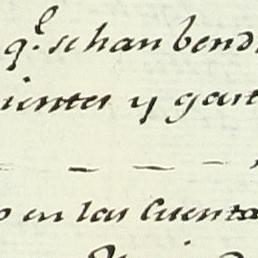 q.e se han bend
ientes y gast
o en las Cuenta